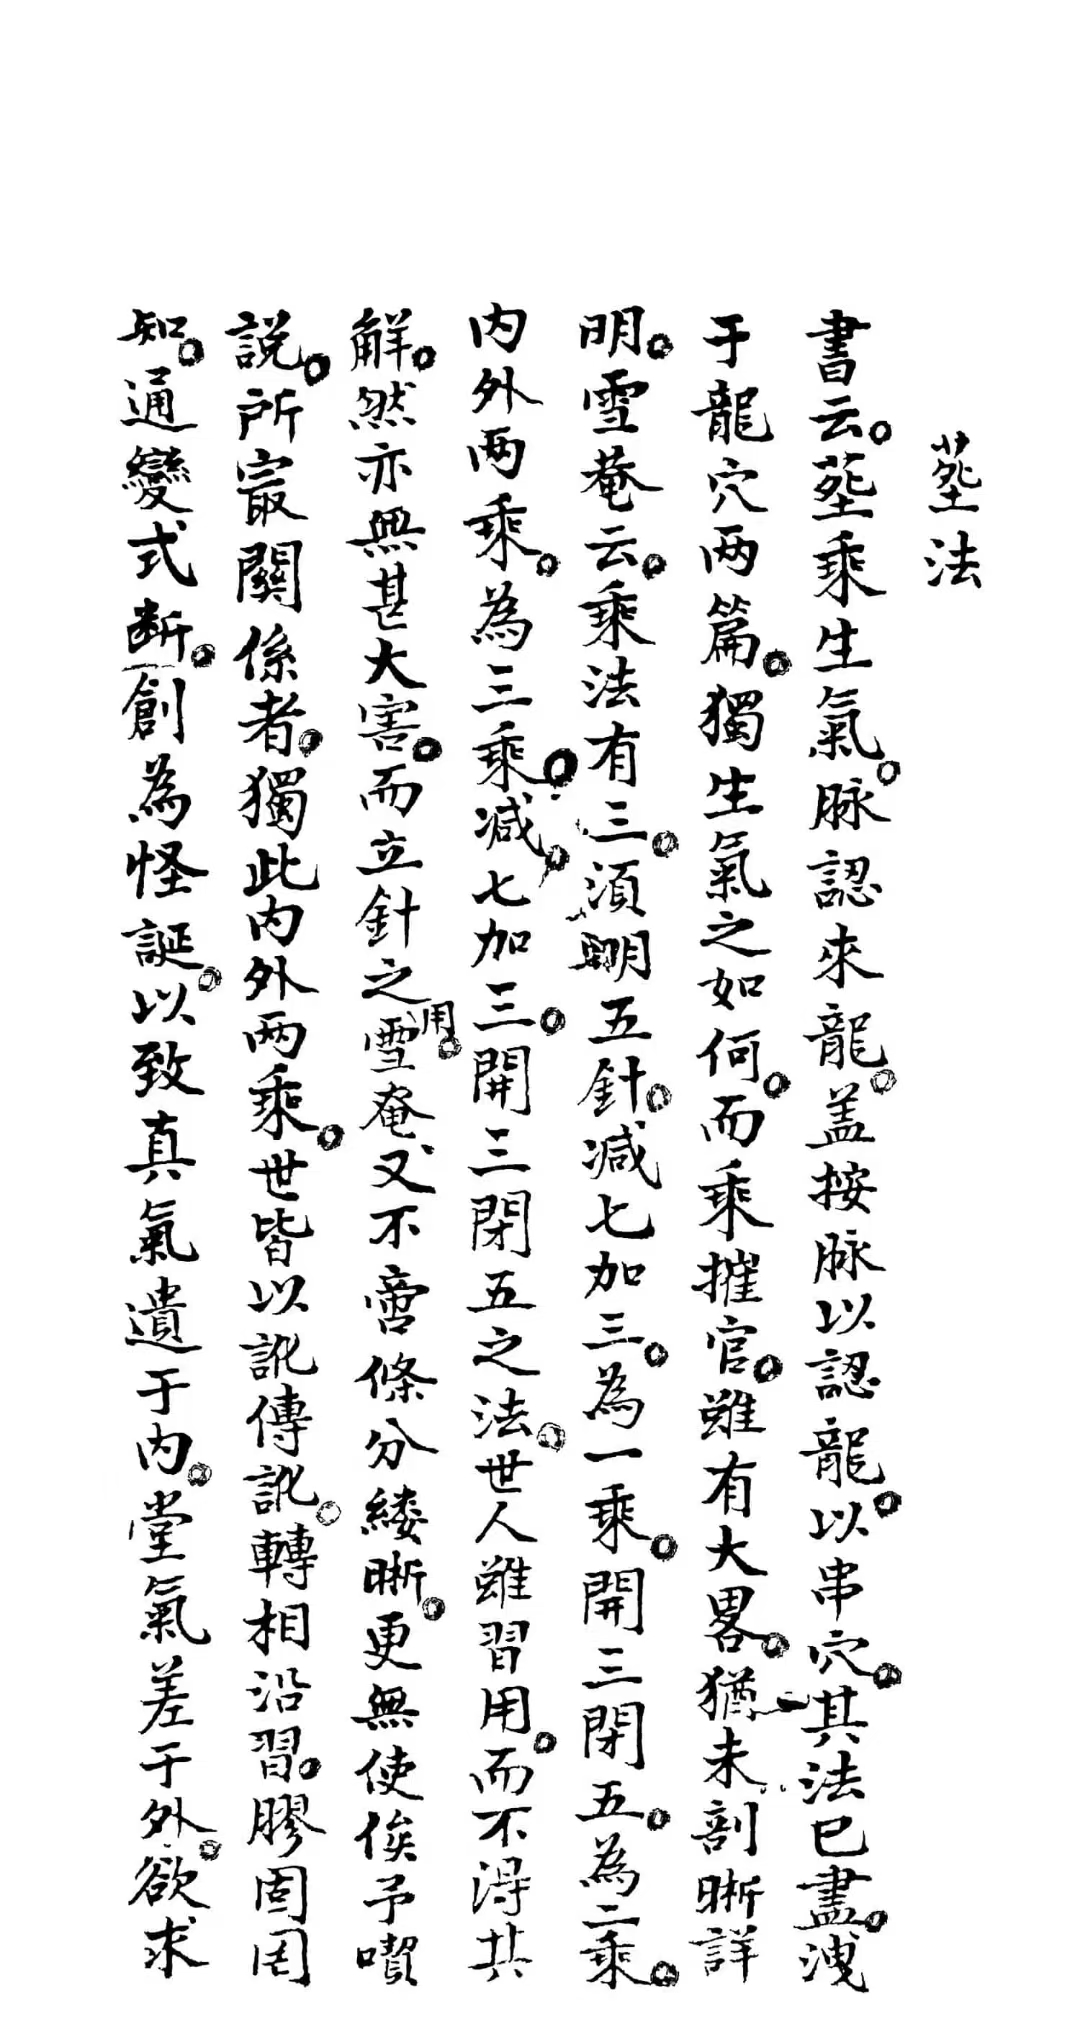 塟法
書云。塟乘生氣。脉認來龍。盖按脉以認龍。以串穴。其法已盡。洩
于龍穴两篇。獨生氣之如何。而乘摧官。雖有大畧。猶未剖晰詳
明。雪菴云。乘法有三。須明五針。减七加三。為一乘。開三閉五。為二乘。
内外两乘。為三乘。减。七加三。開三閉五之法。世人雖習用。而不得其
解。然亦無甚大害。而立針之用。雪菴又不啻條分縷晰。更無使俟予喫
説。所㝡關係者。獨此内外两乘。世皆以訛傳訛。轉相沿習。膠固罔
知。通變式断。創為怪誕。以致真氣遺于内。堂氣差于外。欲求